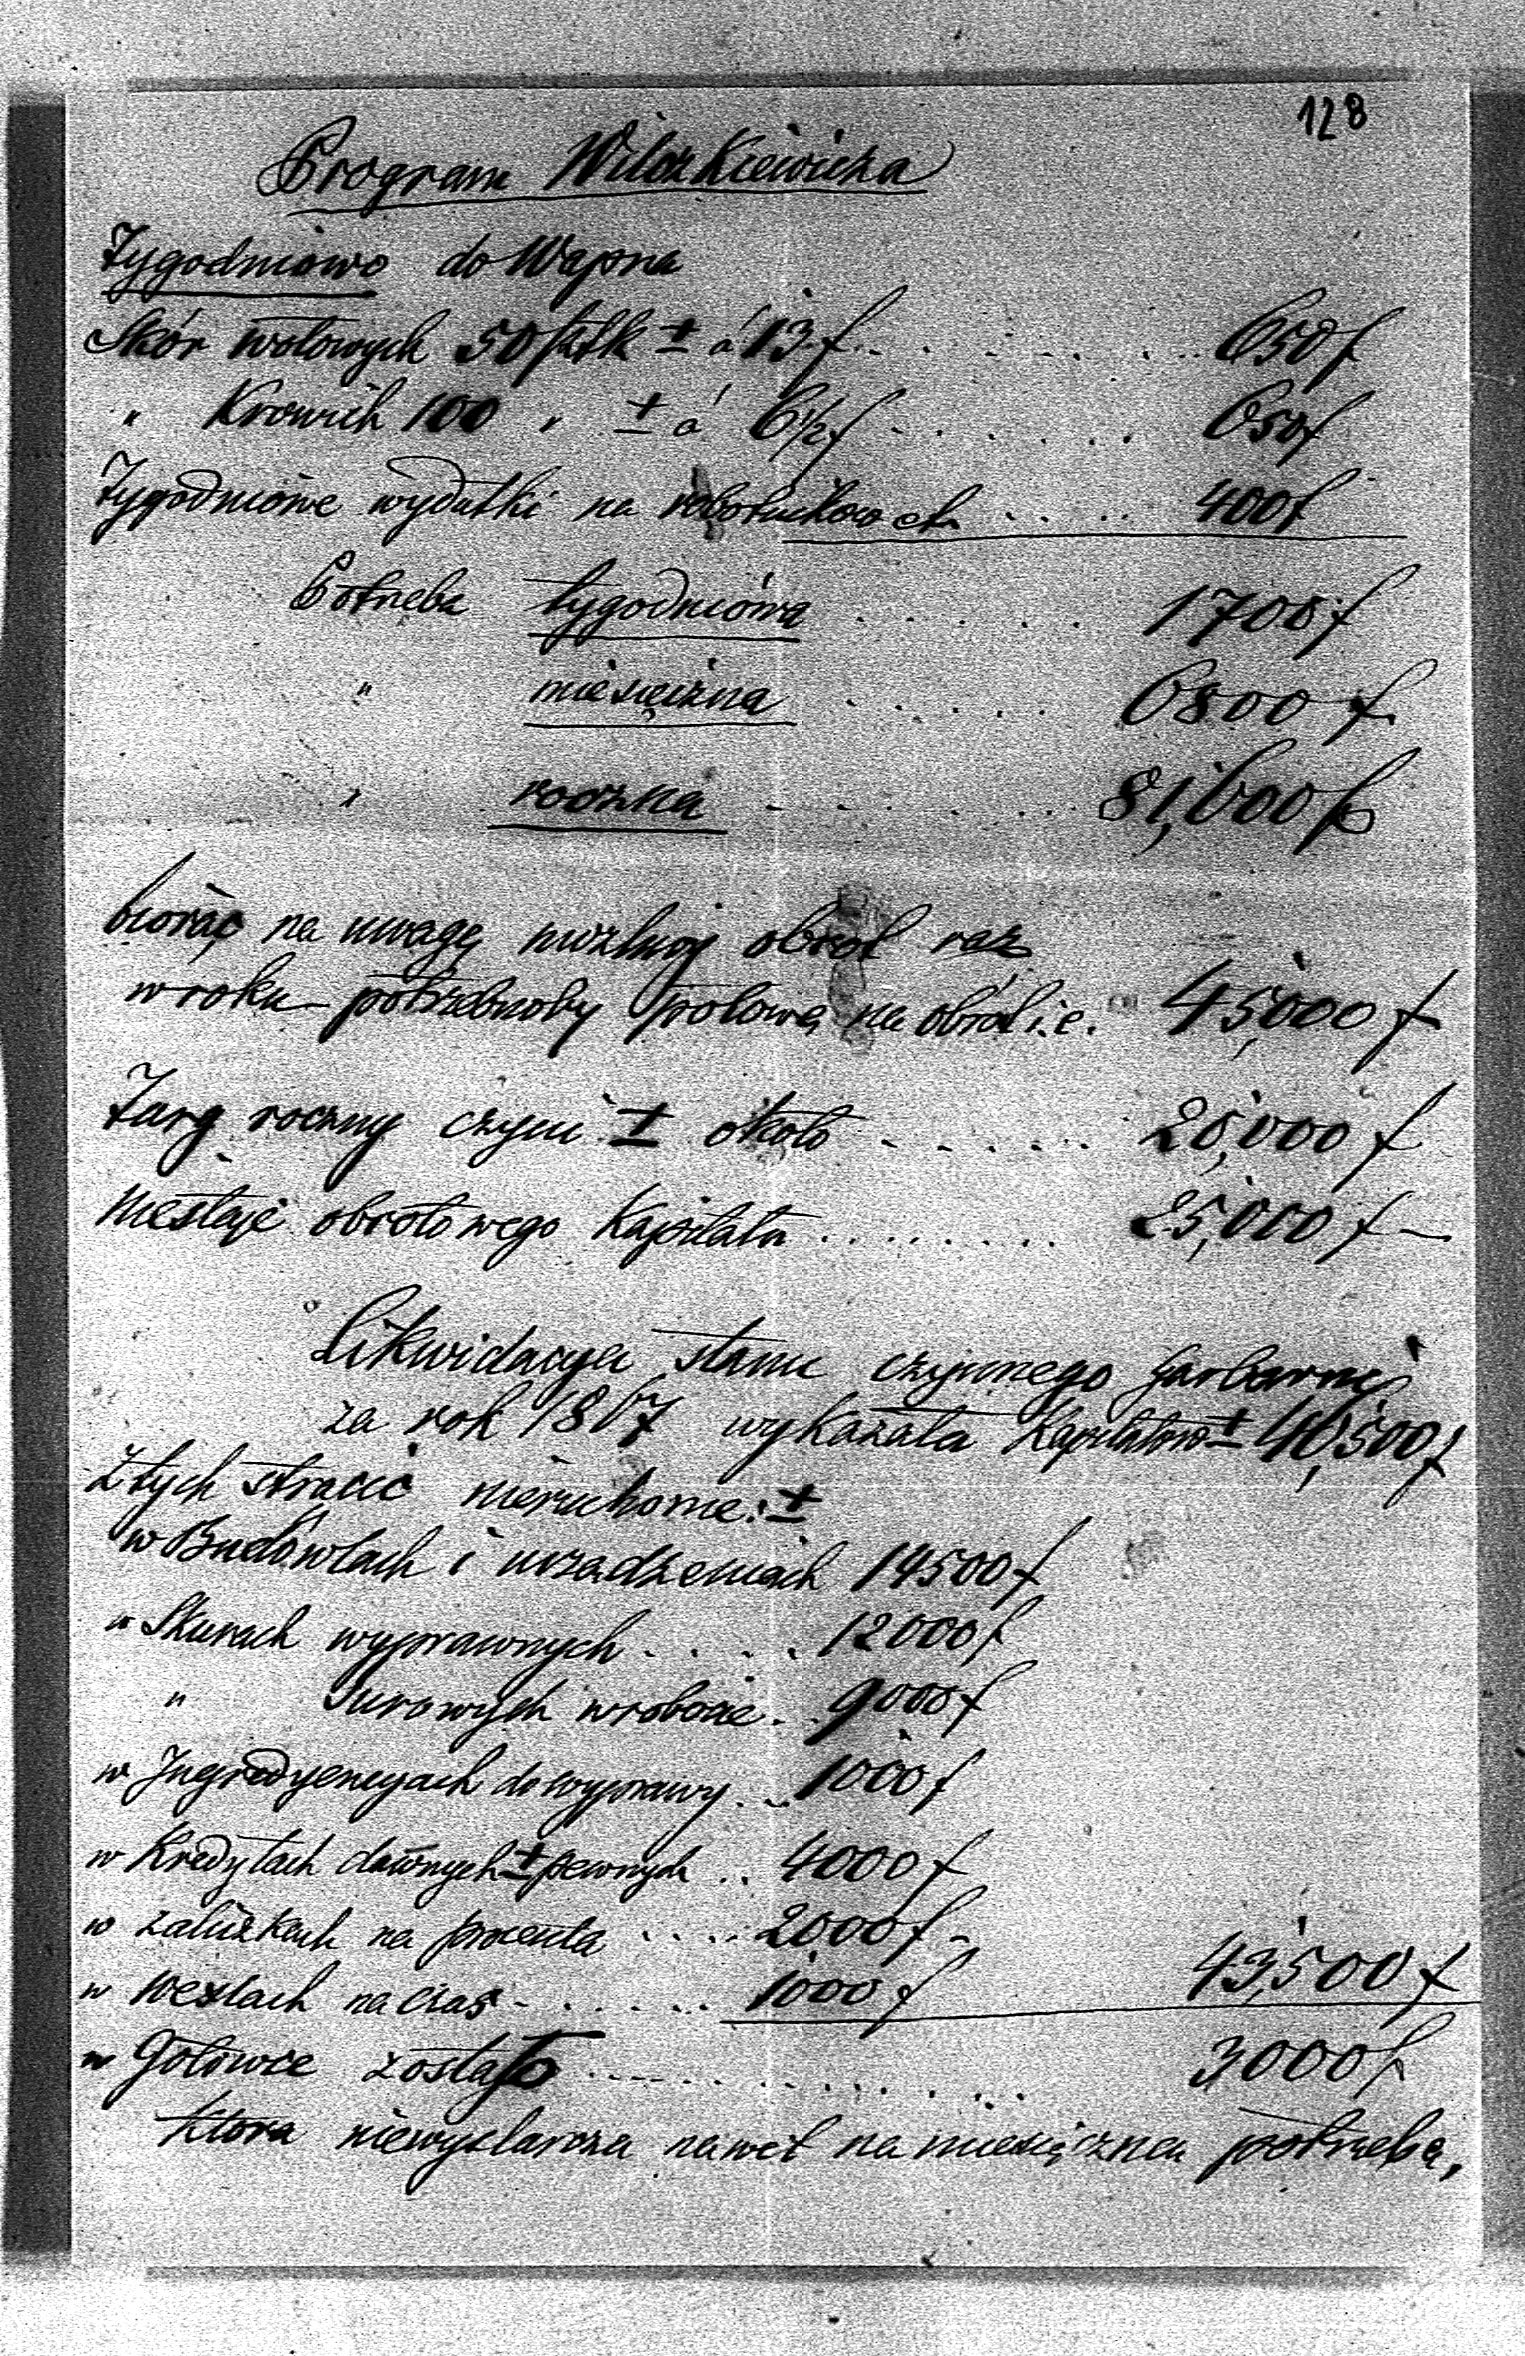 128
Program Wilczkiewicza
Tygodniowo do Wapna
Skór wołowych 50 sztk ± á 13 f. . . . . . . . . 650 f
" Krowich 100 " ± á 6 1/2 f . . . . . . . 650 f
Tygodniowe wydatki na robotników etc . . . . 400 f
Potrzeba tygodniowa . . . . . . 1700 f
" miesięczna . . . . . . 6800 f
" roczna . . . . . . 81,600 f
biorąc na uwagę możliwy obrot raz
w roku potrzebnoby połowę na obrót i.e. 45,000 f
Targ roczny czyni ± około . . . . . . 20,000 f
Niestaje obrotowego Kapitału . . . . . . . . 25,000 f
Likwidacya stanu czynnego Garbarni
za rok 1867 wykazała Kapitałów ± 46,500 f
Z tych stracić nieruchome: ±
w Budowlach i urządzeniach 14500 f
w Skurach wyprawnych . . . . 12000 f
" Surowych w robocie . . 9000 f
w Ingredyencyach do wyprawy . . 1000 f
w Kredytach dawnych ± pewnych . . 4000 f
w zaliczkach na procenta . . . . . 2000 f
w Wexlach na czas . . . . . . 1000 f 43,500 f
w Gotowce zostało . . . . . . . . . . . . 3000 f
Ktora niewystarcza nawet na miesięczną potrzebę,